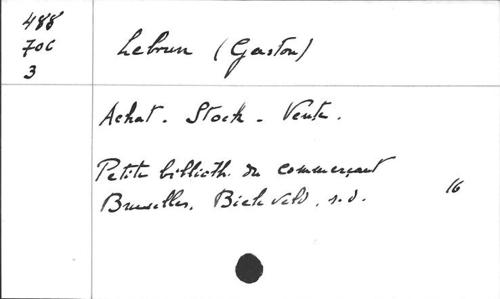 488
70C
3
Lebrun (Gaston)
Achat. Stock. Vente.
Petite biblioth. du commerçant
Bruxelles. Bieleveld. s.d.
16